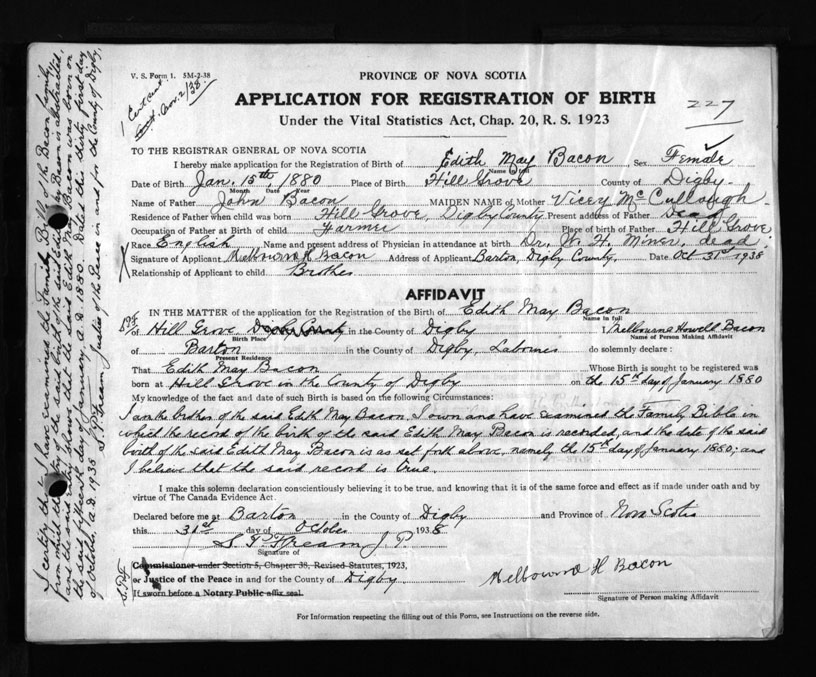 V. S. Form 1. 5M-2-38
1 Cert sent
Nov. 2/38.
PROVINCE OF NOVA SCOTIA
APPLICATION FOR REGISTRATION OF BIRTH
227
Under the Vital Statistics Act, Chap. 20, R. S. 1923
TO THE REGISTRAR GENERAL OF NOVA SCOTIA
I hereby make application for the Registration of Birth of Edith May Bacon Sex Female
Name in full
Date of Birth Jan. 15th, 1880 Place of Birth Hill Grove County of Digby
Month Date Year
Name of Father John Bacon MAIDEN NAME of Mother Vicey McCullough
Residence of Father when child was born Hill Grove, Digby County. Present address of Father Dead
Occupation of Father at Birth of child Farmer Place of birth of Father Hill Grove
Race English Name and present address of Physician in attendance at birth Dr. H. dead
X Signature of Applicant Melbourne H Bacon Address of Applicant Barton, Digby County. Date Oct 31st 1938
Relationship of Applicant to child Brother
AFFIDAVIT
IN THE MATTER of the application for the Registration of Birth of Edith May Bacon
Name in full
of Hill Grove Digby County in the County of Digby I Melbourne Howell Bacon
Birth Place Name of Person Making Affidavit
of Barton in the County of Digby, Laborer do solemnly declare:
Present Residence
That Edith May Bacon Whose Birth is sought to be registered was
born at Hill Grove in the County of Digby on the 15th day of January 1880
My knowledge of the fact and date of such Birth is based on the following Circumstances:
I am the brother of the said Edith May Bacon, I own and have examined the Family Bible in
which the record of the birth of the said Edith May Bacon is recorded, and the date of the said
birth of the said Edith May Bacon is as set forth above, namely the 15th day of January 1880; and
I believe that the said record is true.
I make this solemn declaration conscientiously believing it to be true, and knowing that it is of the same force and effect as if made under oath and by
virtue of The Canada Evidence Act.
Declared before me at Barton in the County of Digby and Province of Nova Scotia
this 31st day of October 1938
S. P. J. P.
Signature of
Commissioner under Section 5, Chapter 38, Revised Statutes, 1923,
or Justice of the Peace in and for the County of Digby
If sworn before a Notary Public affix seal.
Melbourne H Bacon
Signature of Person making Affidavit
For Information respecting the filling out of this Form, see Instructions on the reverse side.
I certify that I have examined the Family Bible of the Bacon family,
from which the date of the said birth of the said Edith May Bacon is abstracted
and the said record shows that the said Edith May Bacon was born on
the said fifteenth day of January A.D. 1880. Dated this thirty first day
of October, A.D. 1938 Justice of the Peace in and for the County of Digby.